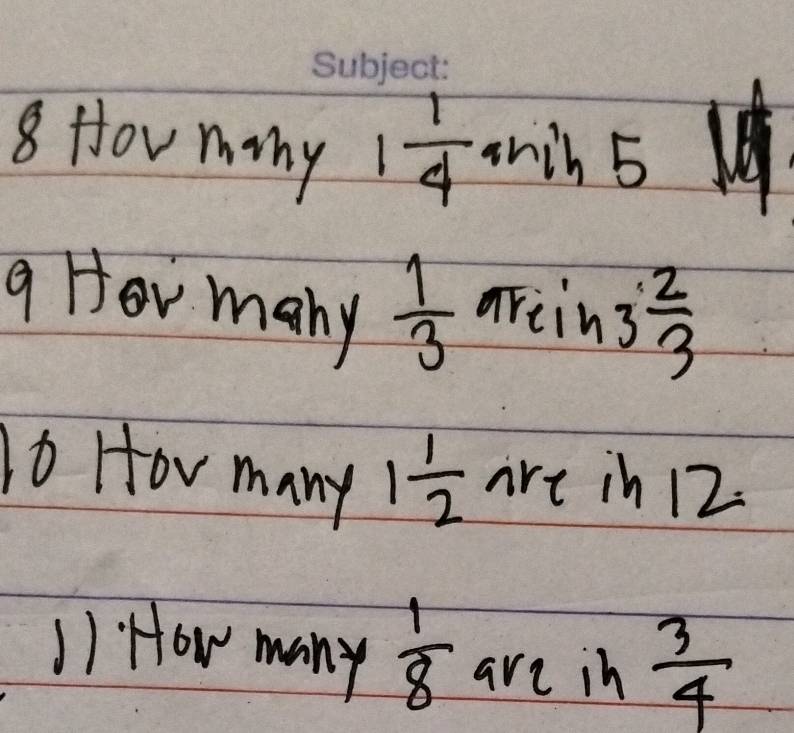 Subject:
8 How many 1 1/4 are in 5
9 How many 1/3 are in 3 2/3
10 How many 1 1/2 are in 12.
11 How many 1/8 are in 3/4